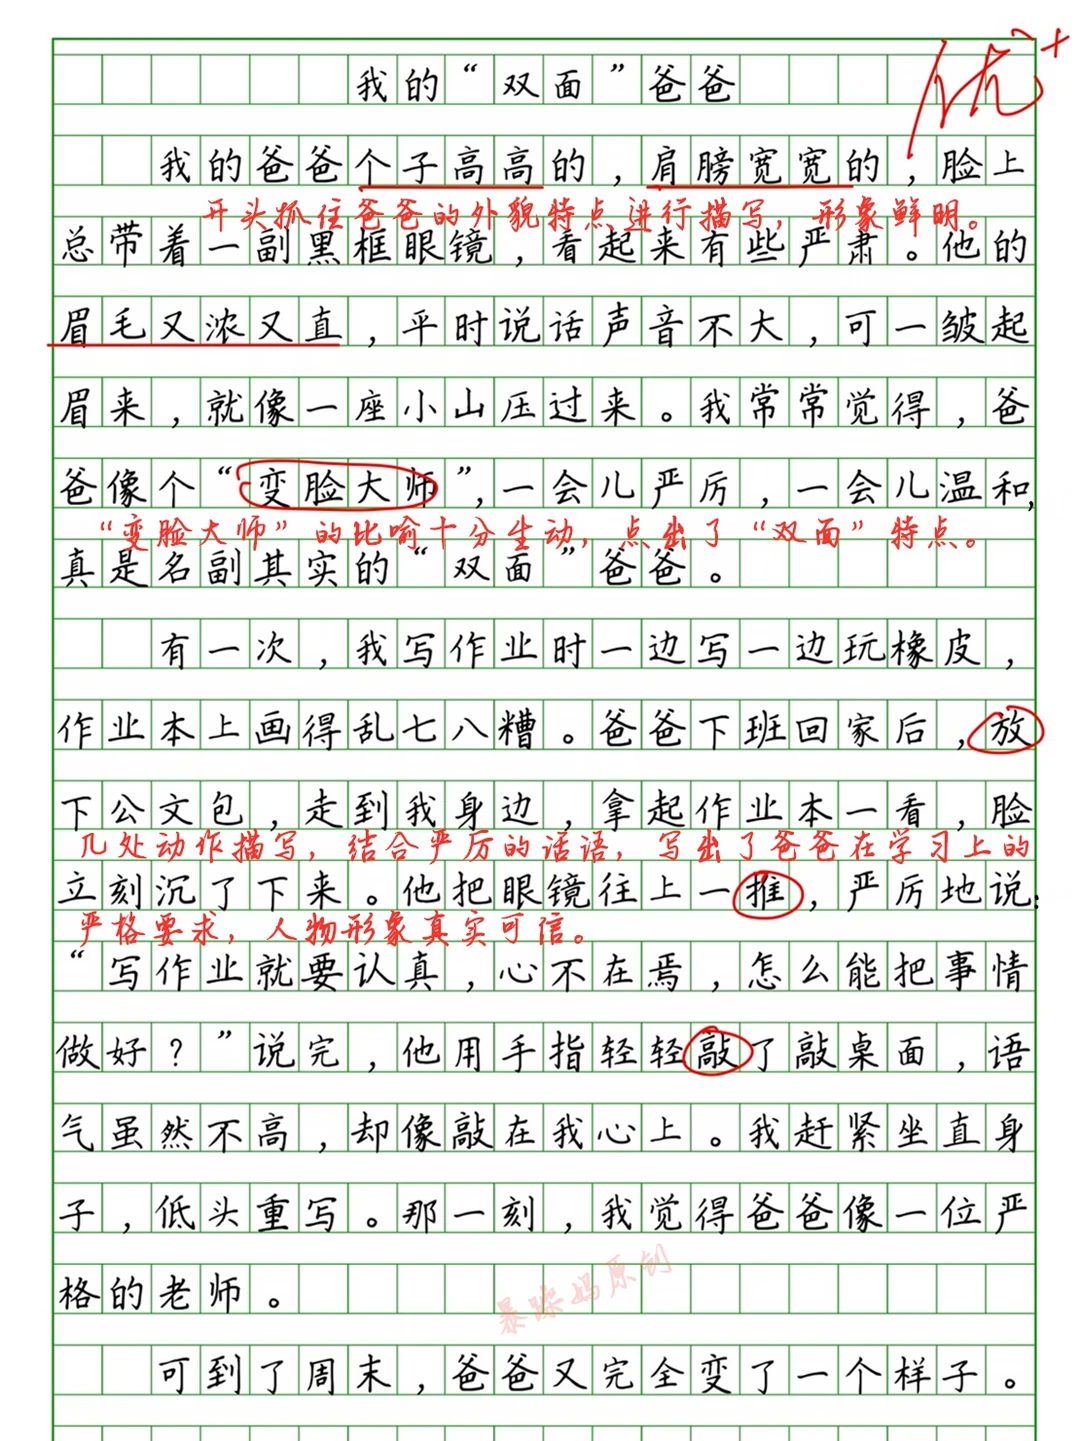 我的“双面”爸爸
优+
我的爸爸个子高高的，肩膀宽宽的，脸上
开头抓住爸爸的外貌特点进行描写，形象鲜明。
总带着一副黑框眼镜，看起来有些严肃。他的
眉毛又浓又直，平时说话声音不大，可一皱起
眉来，就像一座小山压过来。我常常觉得，爸
爸像个“变脸大师”，一会儿严厉，一会儿温和，
“变脸大师”的比喻十分生动，点出了“双面”特点。
真是名副其实的“双面”爸爸。
有一次，我写作业时一边写一边玩橡皮，
作业本上画得乱七八糟。爸爸下班回家后，放
下公文包，走到我身边，拿起作业本一看，脸
几处动作描写，结合严厉的话语，写出了爸爸在学习上的
立刻沉了下来。他把眼镜往上一推，严厉地说：
严格要求，人物形象真实可信。
“写作业就要认真，心不在焉，怎么能把事情
做好？”说完，他用手指轻轻敲了敲桌面，语
气虽然不高，却像敲在我心上。我赶紧坐直身
子，低头重写。那一刻，我觉得爸爸像一位严
格的老师。
暴躁妈原创
可到了周末，爸爸又完全变了一个样子。